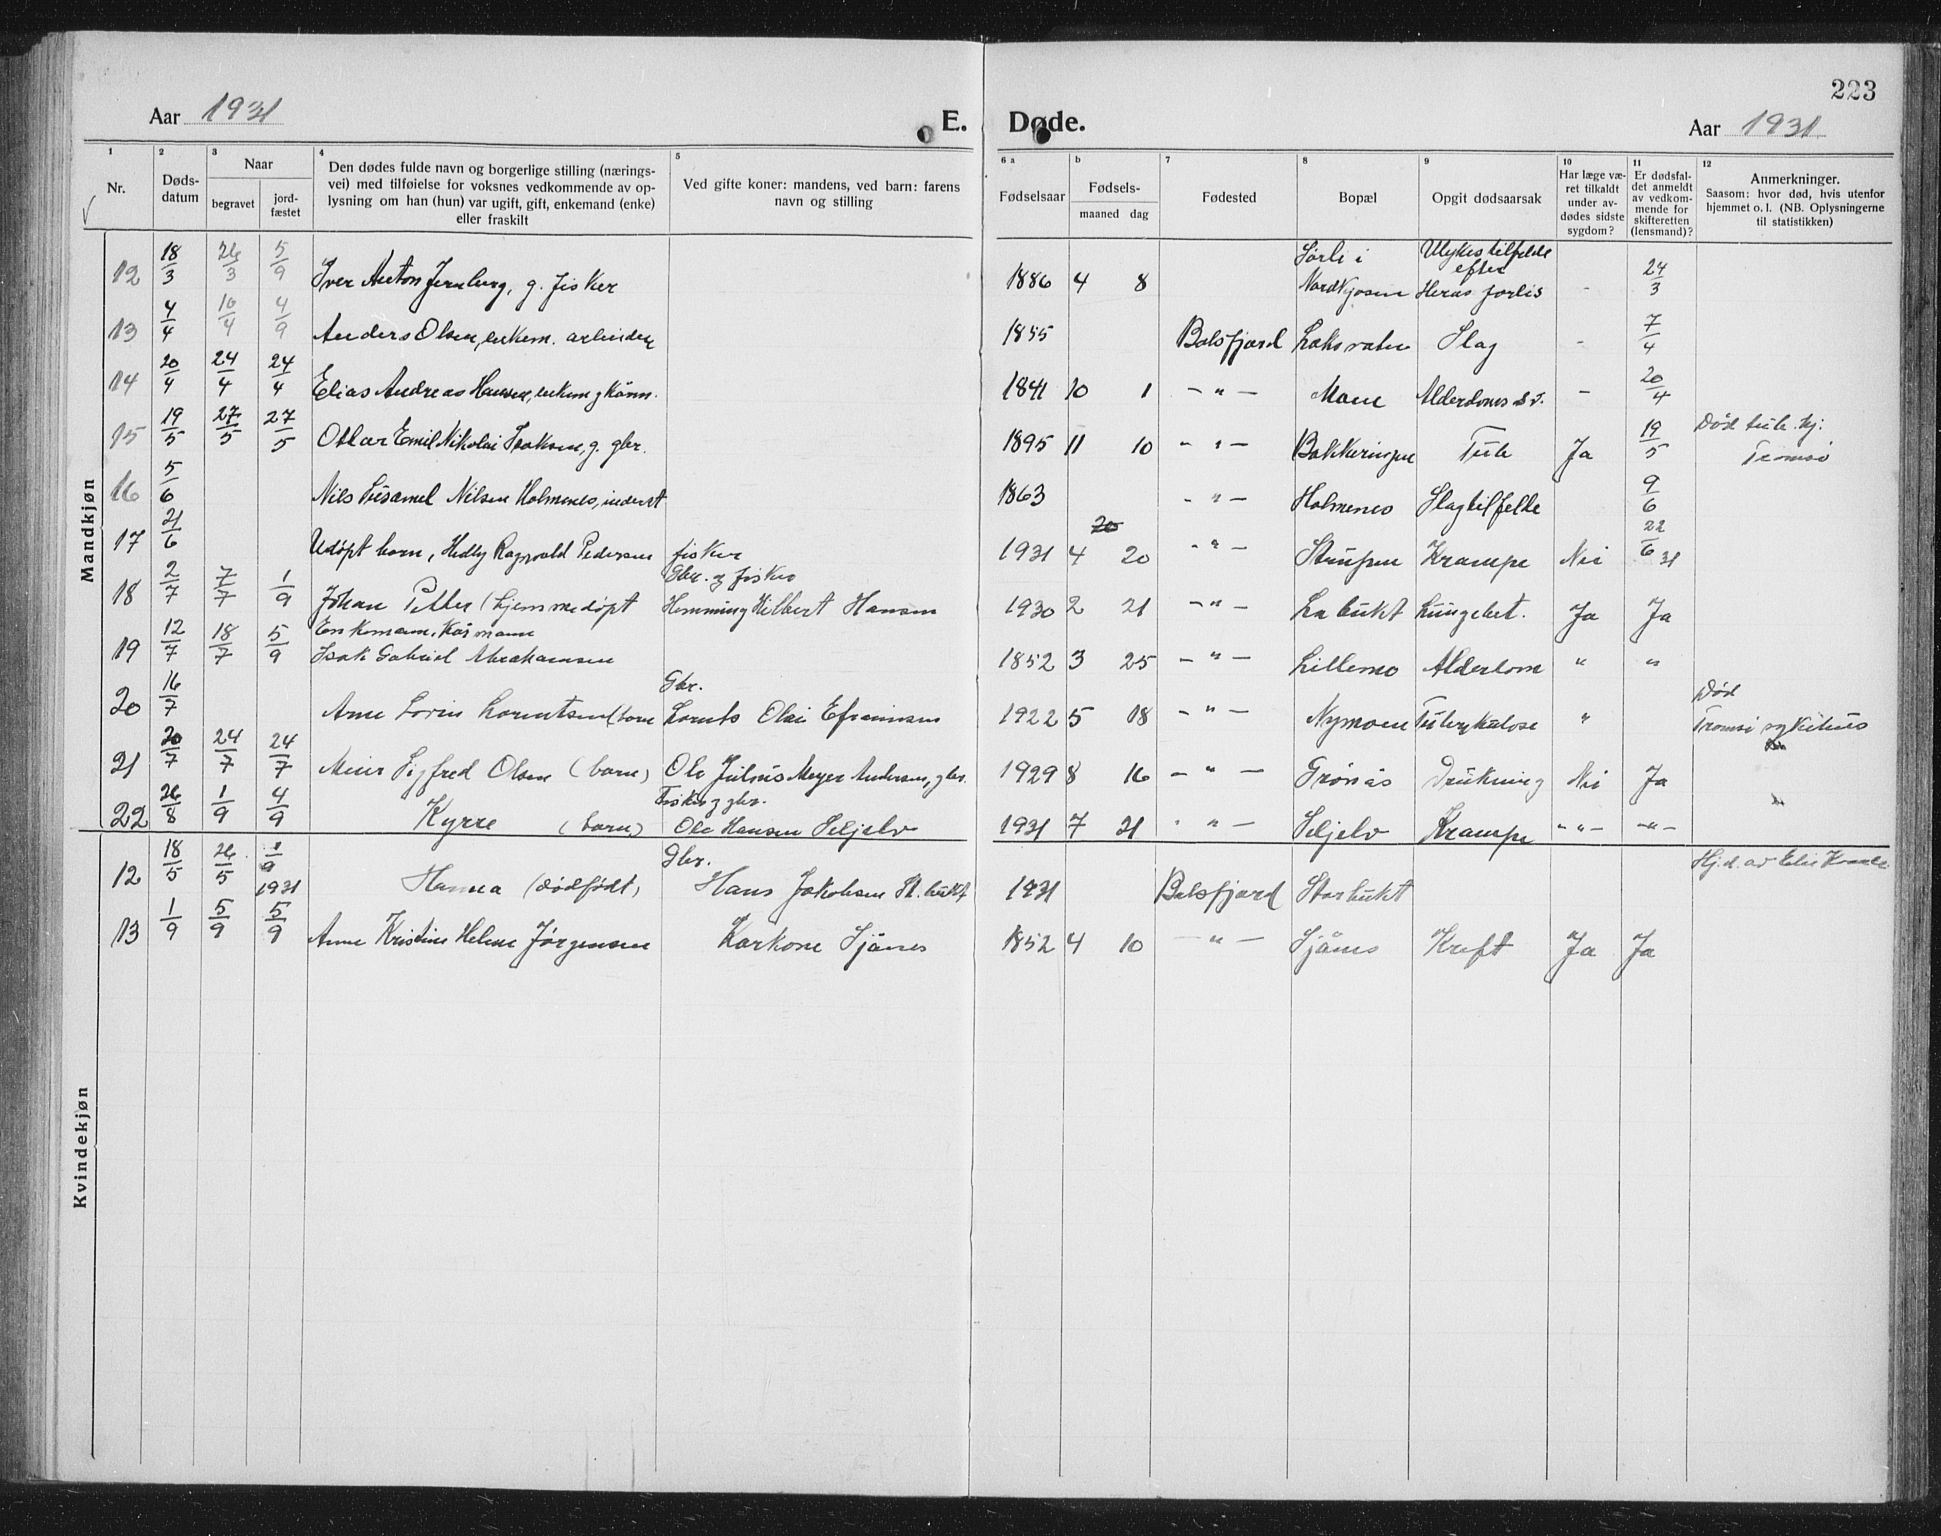 223
Aar 1931 E. Døde. Aar 1931
1 2 3 4 5 6 a b 7 8 9 10 11 12
Nr.
Døds-
datum
Naar
begravet
jord-
fæstet
Den dødes fulde navn og borgerlige stilling (nærings-
vei) med tilføielse for voksnes vedkommende av op-
lysning om han (hun) var ugift, gift, enkemand (enke)
eller fraskilt
Ved gifte koner: mandens, ved barn: farens
navn og stilling
Fødselsaar
Fødsels-
maaned dag
Fødested
Bopæl
Opgit dødsaarsak
Har læge væ-
ret tilkaldt
under av-
dødes sidste
sygdom?
Er dødsfal-
det anmeldt
av vedkom-
mende for
skifteretten
(lensmand)?
Anmerkninger.
Saasom: hvor død, hvis utenfor
hjemmet o. l. (NB. Oplysningerne
til statistikken)
Mandkjøn
12 18/3 26/3 5/9 Iver Anton Jernberg, g. fisker 1886 4 8 Sørli i Nordkjosen Ulykkestilfelde efter Heras forlis - 24/3
13 4/4 10/4 4/9 Anders Olsen, enkem. arbeider 1855 Balsfjord Laksvatn Slag - 7/4
14 20/4 24/4 24/4 Elias Andreas Hansen, enkem 1841 10 1 - " - Moen Alderdoms - 20/4
15 19/5 27/5 27/5 Oskar Emil Nikolai Isaksen, g. gbr. 1895 11 10 - " - Bakkeringen Tub Ja 19/5 Død tub. hj. Tromsø
16 5/6 Nils Nilsen Holmenes, inderst 1863 - " - Holmenes Slagtilfelde 9/6
17 21/6 Udøpt barn, Hedly Ragnvald Pedersen fisker 1931 4 20 20 - " - Strupen Krampe Nei 22/6 31
18 2/7 7/7 1/9 Johan Petter (hjemmedøpt Gbr. og fisker Hemming Hilbert Hansen 1930 2 21 - " - bukt Lungebet. Ja Ja
19 12/7 18/7 5/9 Enkemann, Isak Gabriel Abrahamsen 1852 3 25 - " - Lillemo Alderdom " "
20 16/7 Arne Lorin Lorentsen (barn Gbr. Lorents Olai Efraimsen 1922 5 18 - " - Nymoen Tuberkulose " Død Tromsø sykehus
21 20/7 24/7 24/7 Meier Sigfred Olsen (barn) Ole Julius Meyer Andersen, gbr. 1929 8 16 - " - Grønås Drukning Nei Ja
22 26/8 1/9 4/9 Kyrre (barn) Fisker g gbr. Ole Hansen Seljelv 1931 7 21 - " - Seljelv Krampe - " - - " -
Kvindekjøn
12 18/5 26/5 1/9 1931 Hanna (dødfødt) Gbr. Hans Jakobsen St. bukt 1931 Balsfjord Storbukt Hj.d. av
13 1/9 5/9 5/9 Anne Kristine Helene Jørgensen Karkone Sjånes 1852 4 10 - " - Sjånes Kreft Ja Ja